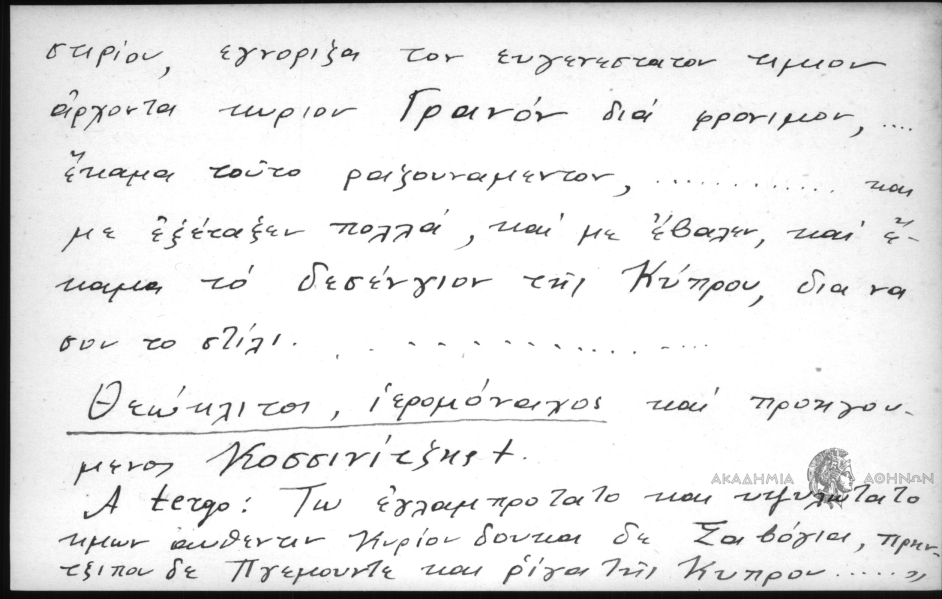 στιρίου, εγνοριξα τον ευγενεστατον τιμιον
ἄρχοντα κυριον Γρανόν διά φρονιμον, ....
ἔκαμα τοῦτο ραιζουναμεντον, ............. και
με ἐξέταξεν πολλά, καί με ἔβαλεν, καί ἔ-
καμα τό δεσένγιον τῆς Κύπρου, δια να
σου το στίλι. . . . . . . . . . . . . . . .
Θεώκλιτος, ἱερομόναχος καί προηγου-
μενος Κοσσινίτζης +.
A tergo: Τω ἐγλαμπροτατο και υψυλώτατο
ημων αυθεντιν Κυρίον δουκα δε Σαβόγια, πριν-
τζιπου δε Πγεμουντε και ῥίγα τῆς Κυπρου ..... »
ΑΚΑΔΗΜΙΑ ΑΘΗΝΩΝ